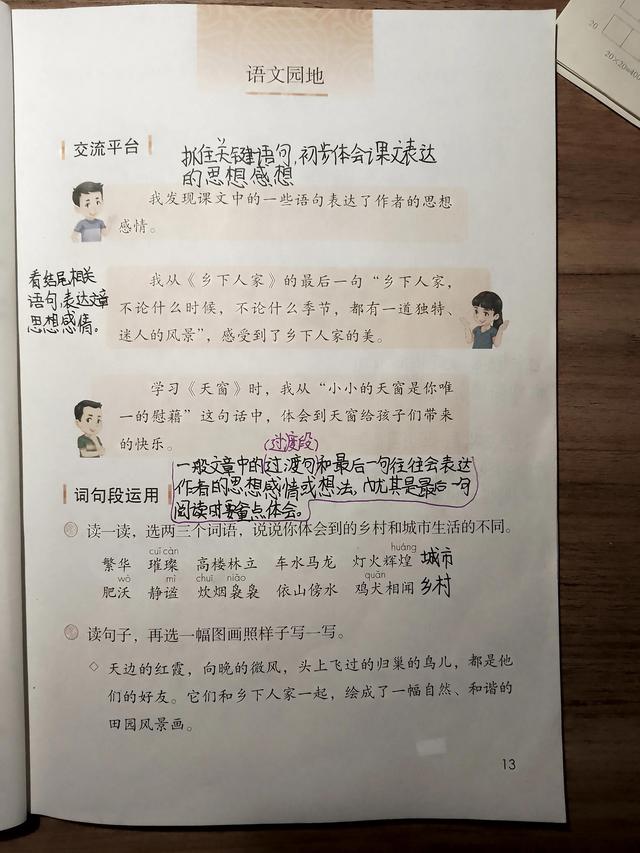 语文园地
20
20×20=400
交流平台
抓住关键语句,初步体会课文表达
的思想感想
我发现课文中的一些语句表达了作者的思想
感情。
看结尾相关
语句,表达文章
思想感情。
我从《乡下人家》的最后一句“乡下人家,
不论什么时候,不论什么季节,都有一道独特、
迷人的风景”,感受到了乡下人家的美。
学习《天窗》时,我从“小小的天窗是你唯
一的慰藉”这句话中,体会到天窗给孩子们带来
的快乐。
(过渡段)
一般文章中的过渡句和最后一句往往会表达
作者的思想感情或想法,尤其是最后一句
阅读时要重点体会。
词句段运用
读一读,选两三个词语,说说你体会到的乡村和城市生活的不同。
cuǐ càn huáng
繁华 璀璨 高楼林立 车水马龙 灯火辉煌 城市
wò mì chuī niǎo quǎn
肥沃 静谧 炊烟袅袅 依山傍水 鸡犬相闻 乡村
读句子,再选一幅图画照样子写一写。
◇ 天边的红霞,向晚的微风,头上飞过的归巢的鸟儿,都是他
们的好友。它们和乡下人家一起,绘成了一幅自然、和谐的
田园风景画。
13